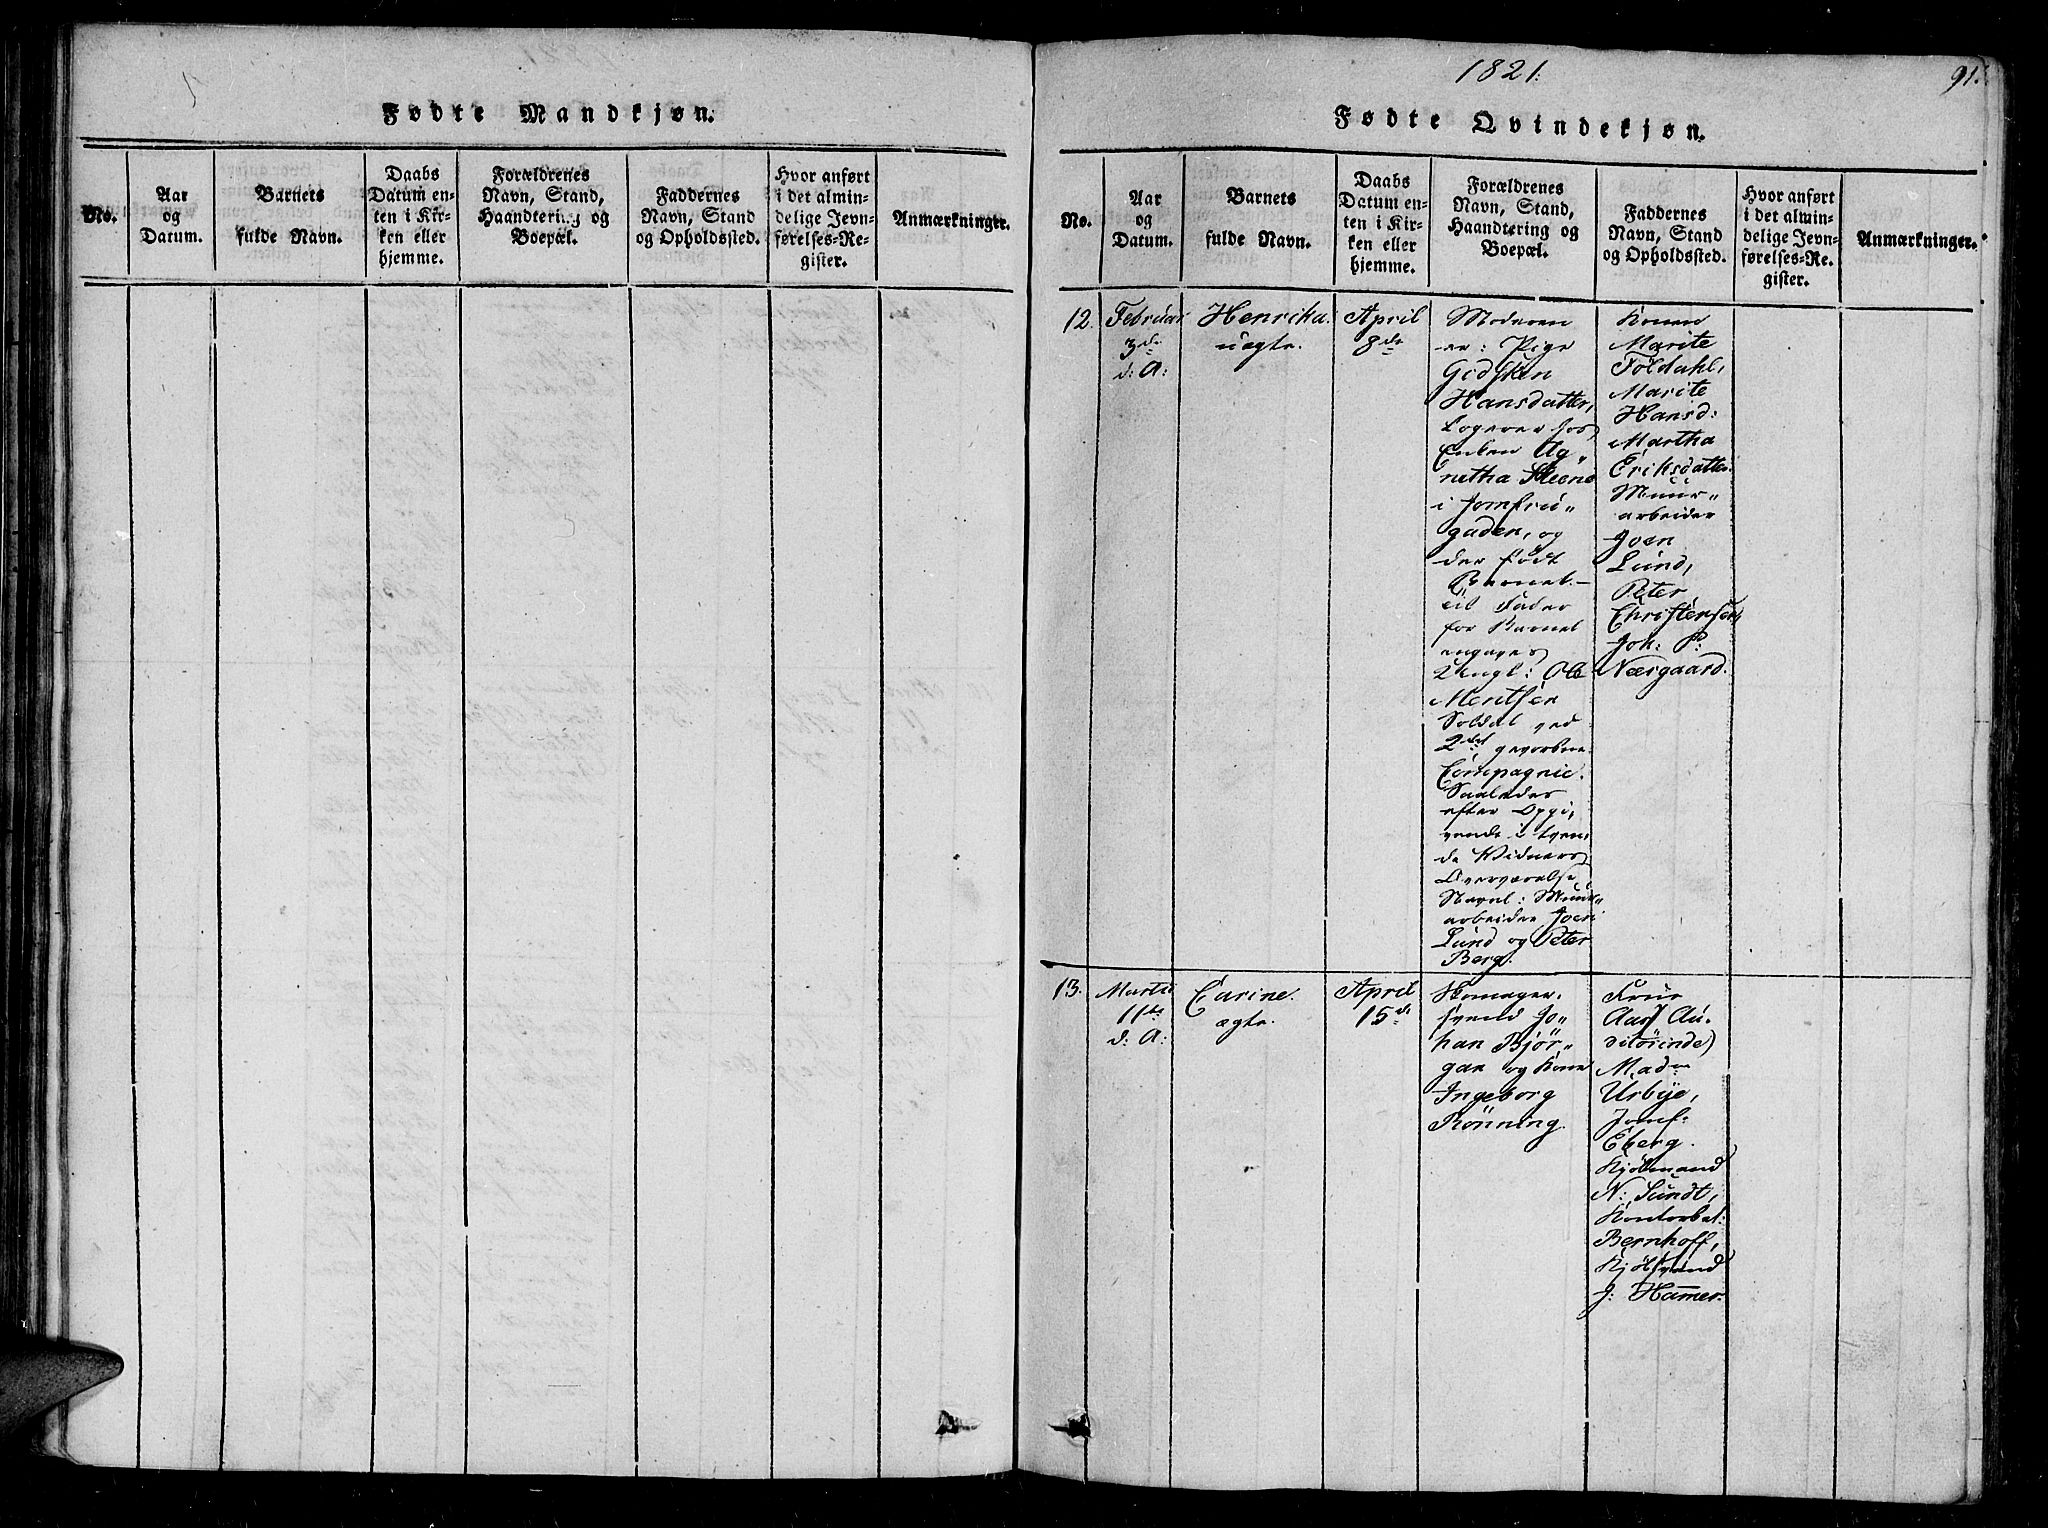 Fødte Mandkjøn.
No.
Aar
og
Datum.
Barnets
fulde Navn.
Daabs
Datum en-
ten i Kir-
ken eller
hjemme.
Forældrenes
Navn, Stand,
Haandtering og
Boepæl.
Faddernes
Navn, Stand
og Opholdssted.
Hvor anført
i det almin-
delige Jevn-
førelses-Re-
gister.
Anmærkninger.
1821.
91.
Fødte Qvindekjøn.
No.
Aar
og
Datum.
Barnets
fulde Navn.
Daabs
Datum en-
ten i Kir-
ken eller
hjemme.
Forældrenes
Navn, Stand,
Haandtering og
Boepæl.
Faddernes
Navn, Stand
og Opholdssted.
Hvor anført
i det almin-
delige Jevn-
førelses-Re-
gister.
Anmærkninger.
12.
Februar
3de
d: A:
Henrika.
uægte.
April
8de
Moderen
er: Pige
Gidsken
Hansdatter,
Logerer hos
Enken Ag„
netha Steene
i Jomfru„
gaden, og
der født
Barnet.
til Fader
for Barnet
angives
Ungk: Ole
Meritsen
Soldat ved
2det gevorbne
Compagnie.
Saaledes
efter Opgi„
vende i tven„
de Vidners
Overværelse
Navnl: Muur„
arbeider Joen
Lund og Peter
Berg.
Konen
Marite
Földahl,
Marite
Hansd:
Martha
Eriksdatter.
Muur„
arbeider
Joen
Lund,
Peter
Christensen
Joh: P:
Næsgaard.
13.
Marti
11te
d: A:
Carine.
ægte.
April
15de
Skomager„
svend Jo„
han Bjør„
gan og Kone
Ingeborg
Rönning.
Frue
Aas (Au„
ditörinde)
Madm
Urbye,
Jomf:
Eberg.
Kjöbmand
N: Lundt,
Kontorbet:
Bernhoff,
Kjölsvend
J: Hamer.